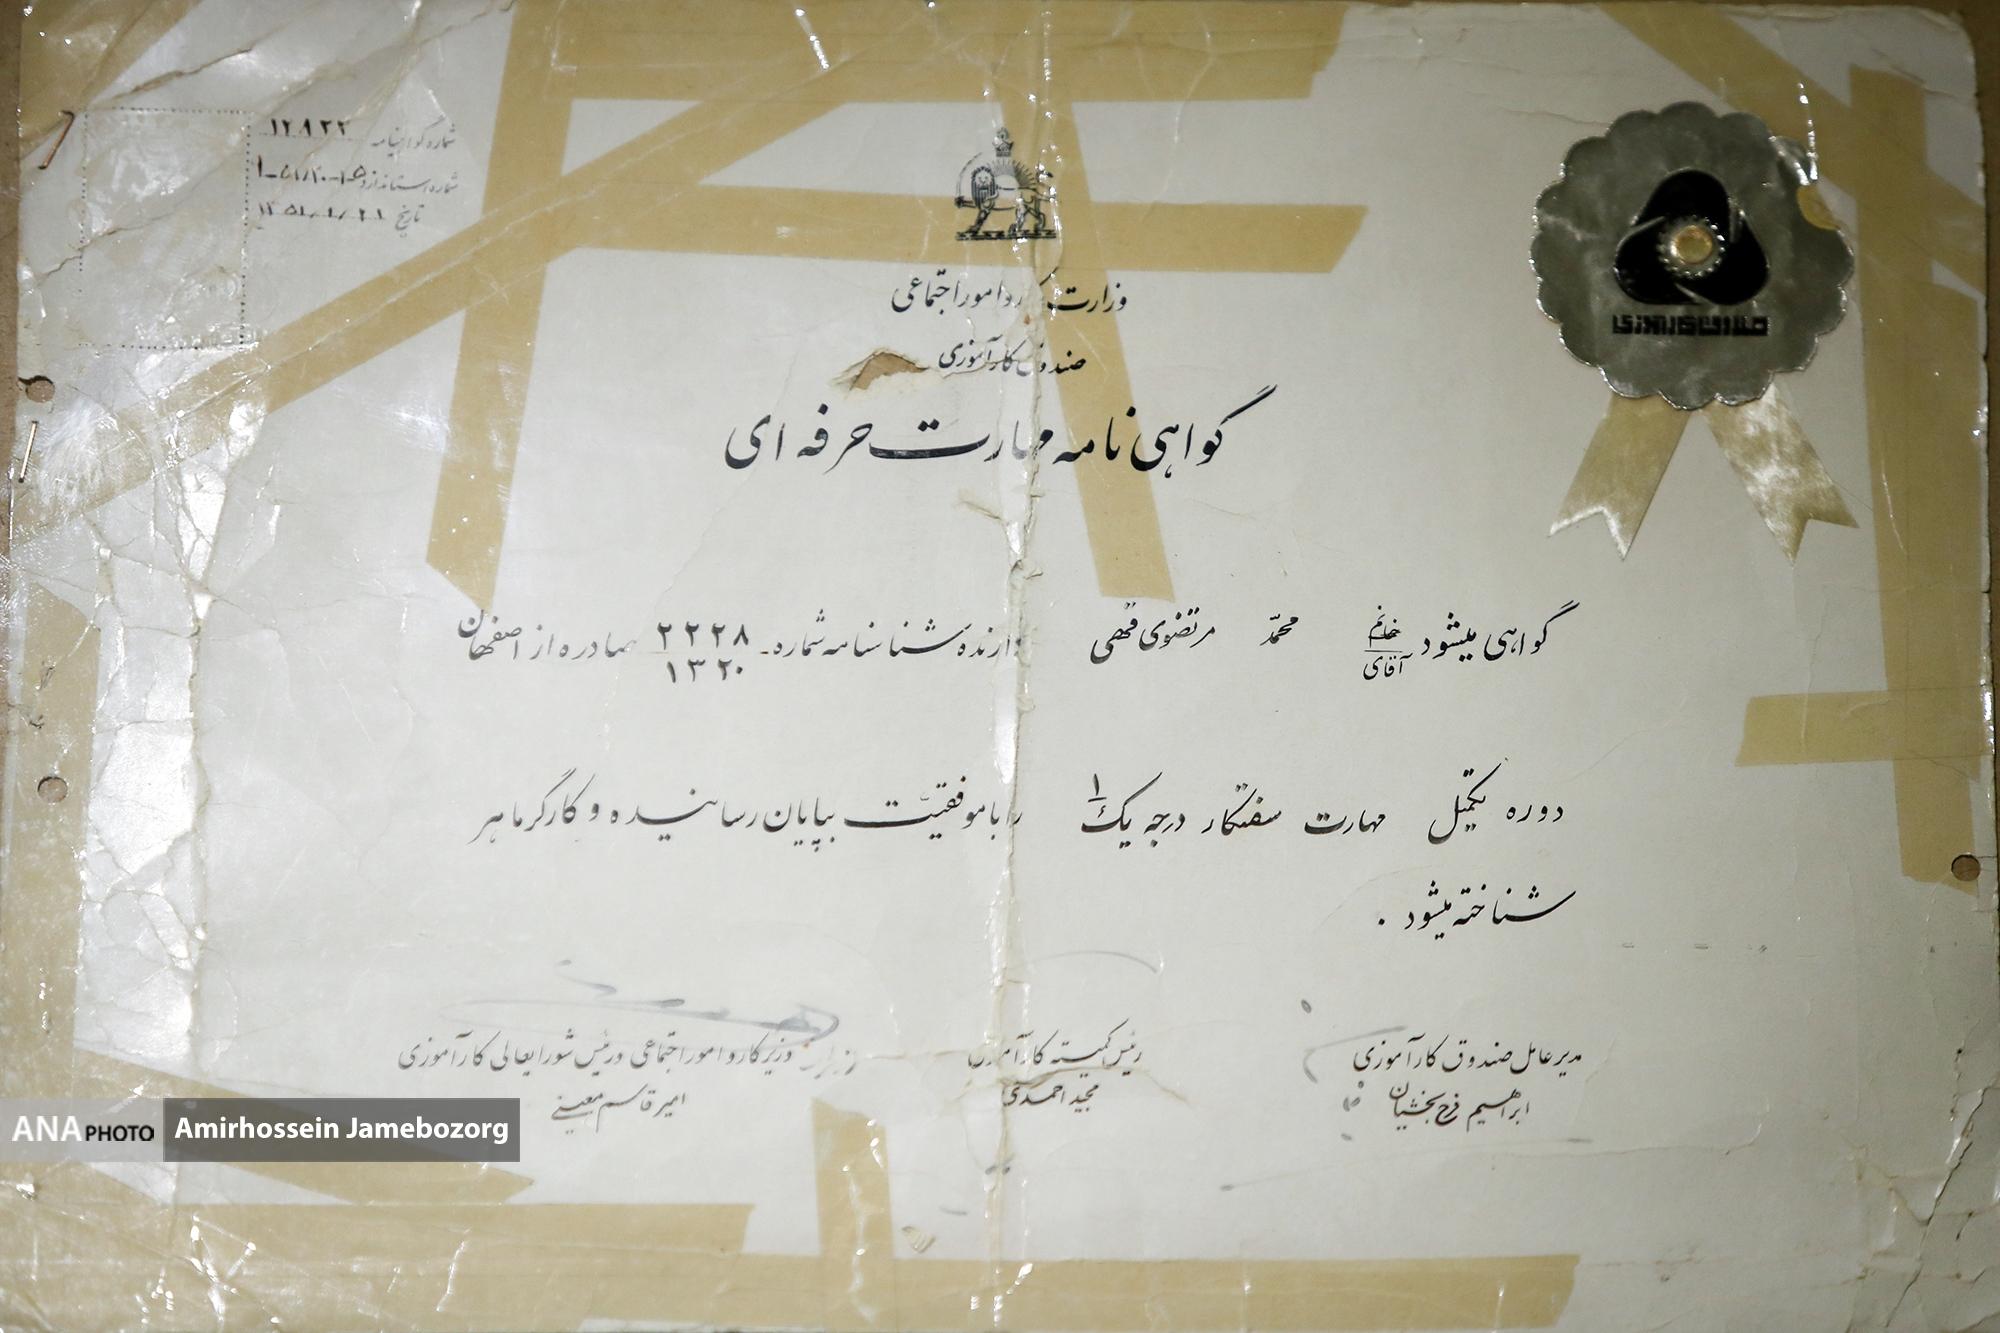 شماره گواهینامه ۱۲۸۲۲
شماره استاندارد
تاریخ
وزارت کار و امور اجتماعی
صندوق کارآموزی
صندوق کارآموزی
گواهی نامه مهارت حرفه ای
گواهی میشود خانم / آقای محمد مرتضوی فهمی دارنده شناسنامه شماره ۲۲۲۸ / ۱۳۲۰ صادره از اصفهان
دوره تکمیل مهارت سفتکار درجه یک ۱ را با موفقیت بپایان رسانیده و کارگر ماهر
شناخته میشود .
مدیر عامل صندوق کارآموزی
ابراهیم فرح بخشیان
رئیس کمیته کارآموزی
مجید احمدی
وزیر کار و امور اجتماعی و رئیس شورایعالی کارآموزی
امیر قاسم معینی
ANA PHOTO Amirhossein Jamebozorg